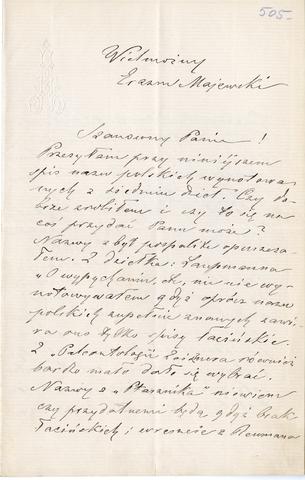 505-
Wielmożny
Erazm Majewski
Szanowny Panie!
Przesyłam przy niniejszem
spis nazw polskich wynotowa-
nych z siedmiu dzieł. Czy do-
brze zrobiłem i czy to się na
coś przydać Panu może?
Nazwy zbyt pospolite opuszcza-
łem. Z dziełka:
"O wypychaniu", nic nie wy-
notowywałem gdyż oprócz nazw
polskich zupełnie znanych zawi-
ra ono tylko spisy łacińskie.
Z "Paleontologii" również
bardzo mało dało się wybrać.
Nazwy z "Ptasznika" niewiem
czy przydatnemi będą gdyż brak
łacińskich; wreszcie z